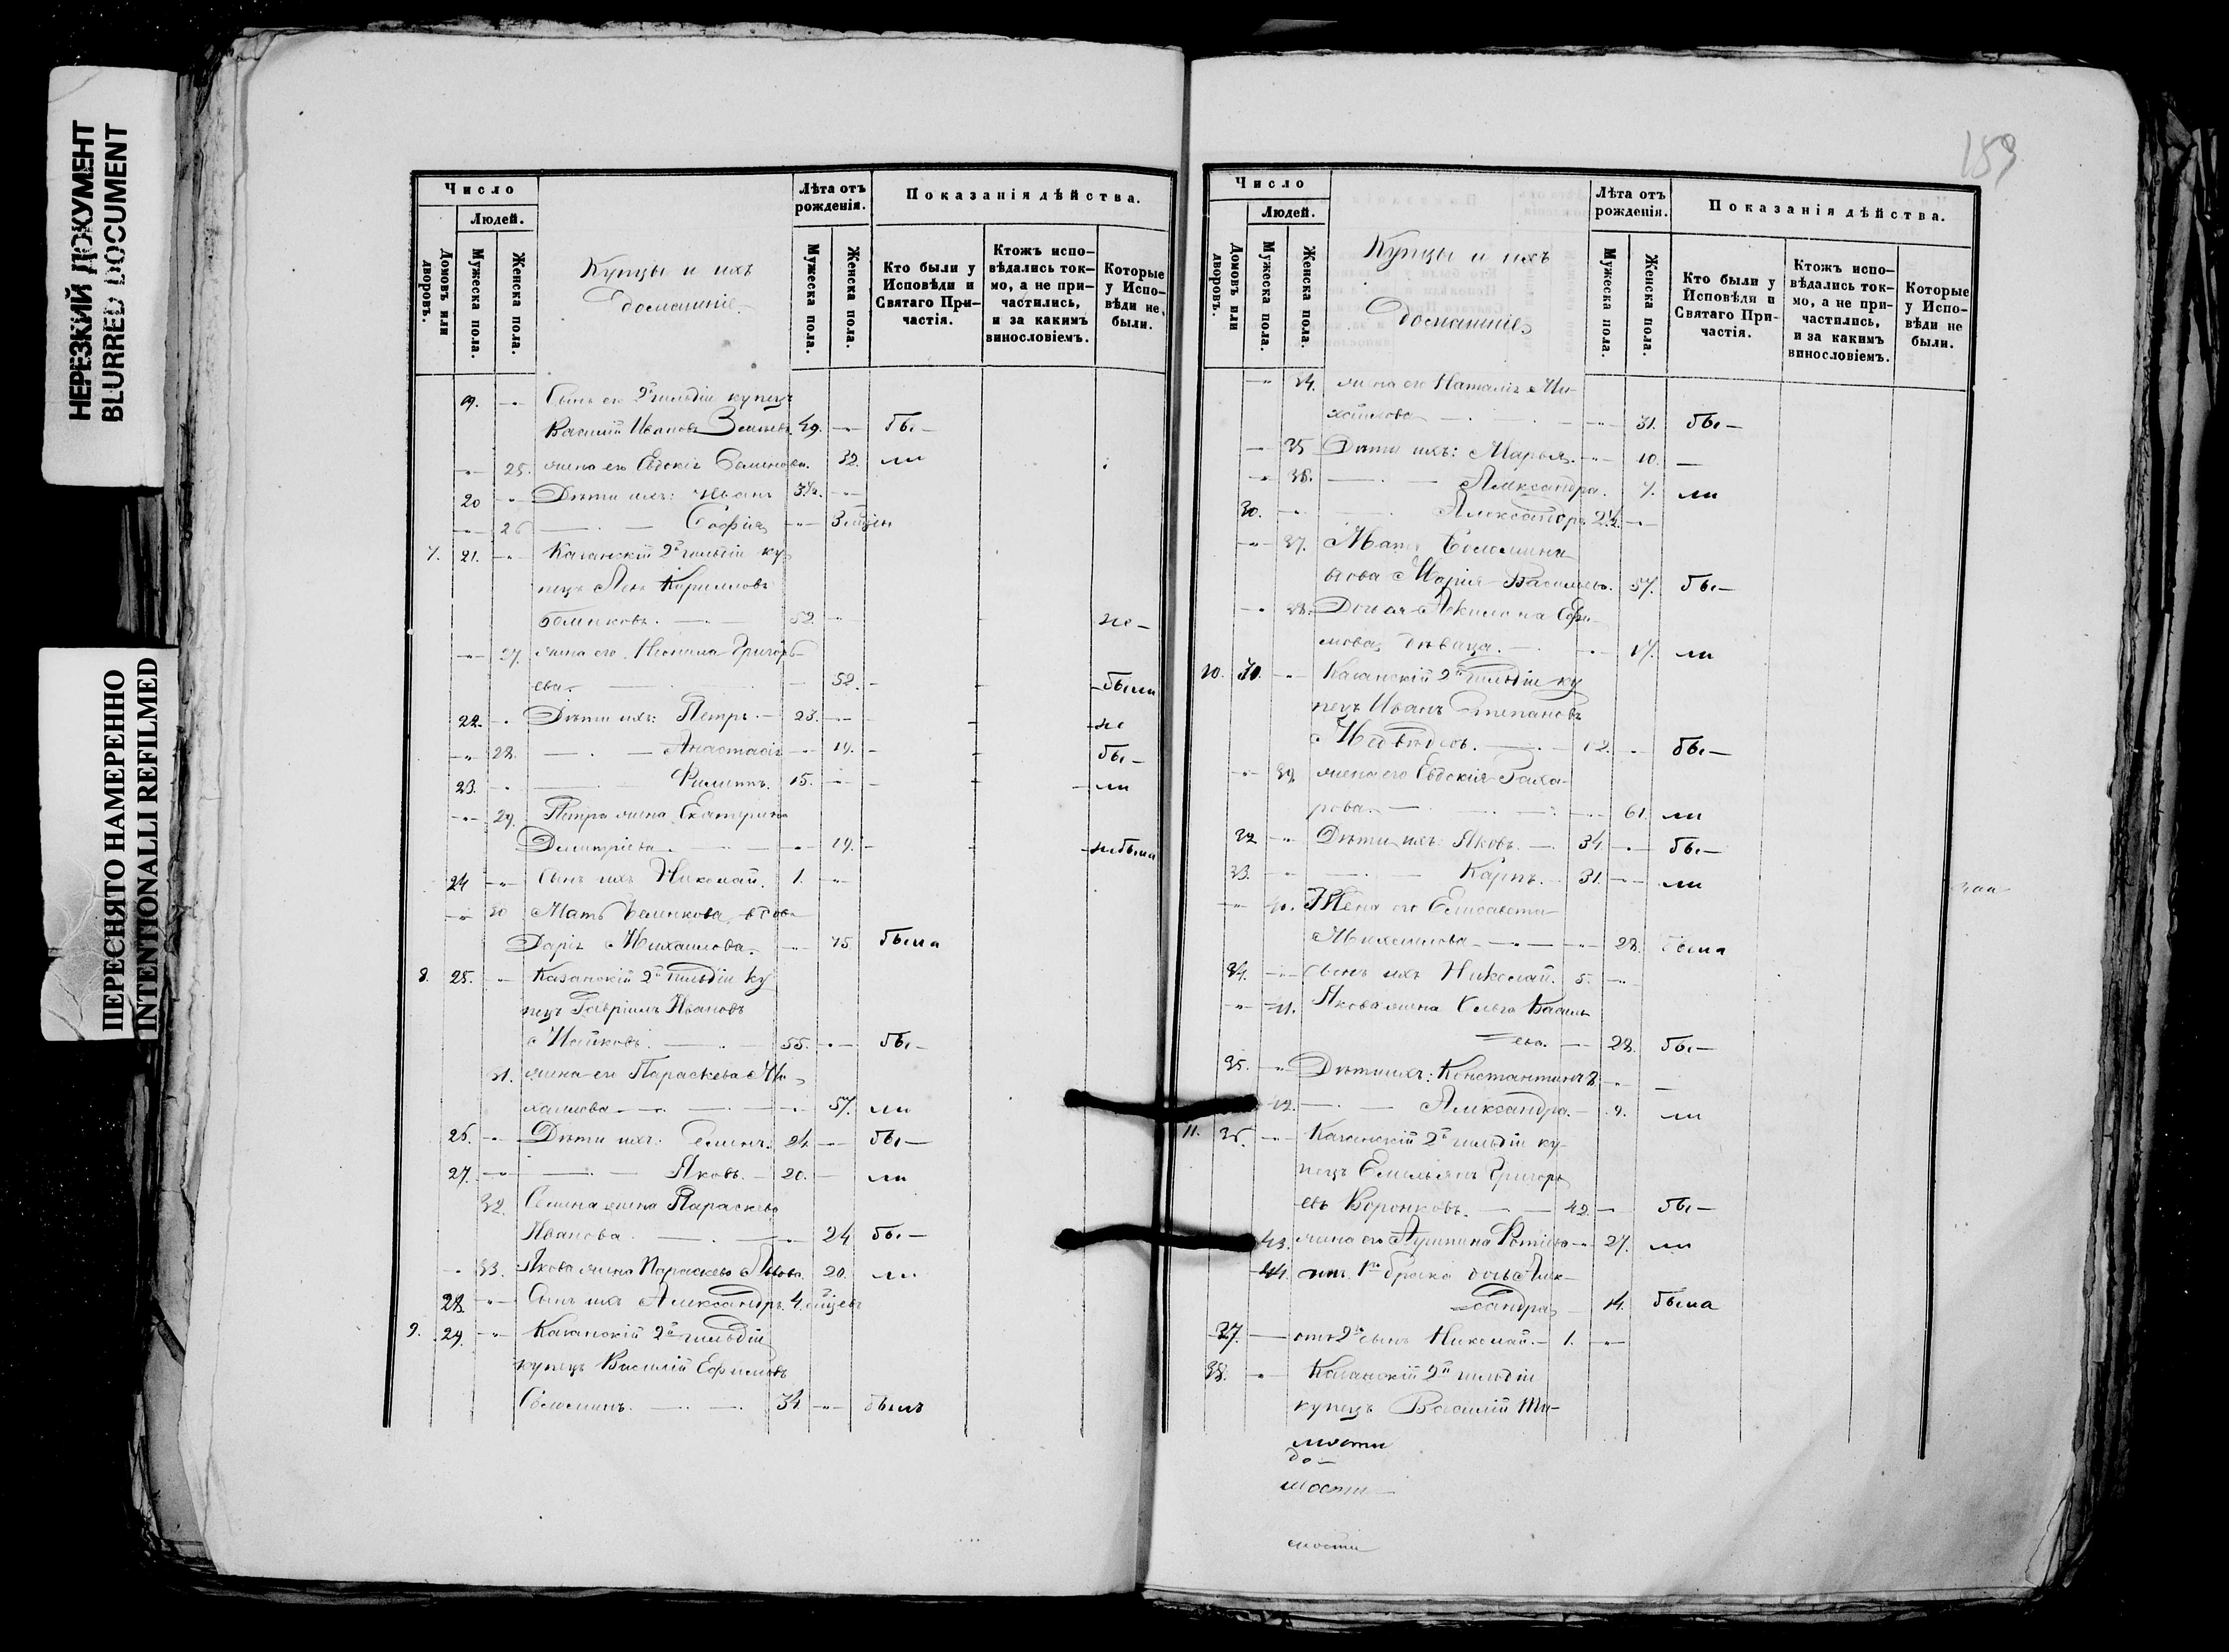 НЕРЕЗКИЙ ДОКУМЕНТ
BLURRED DOCUMENT
ПЕРЕСНЯТО НАМЕРЕННО
INTENTIONALLI REFILMED
Число
Людей.
Домовъ или дворовъ.
Мужеска пола.
Женска пола.
Купцы и ихъ
домашніе
Лѣта отъ рожденія.
Мужеска пола.
Женска пола.
Показанія дѣйства.
Кто были у Исповѣди и Святаго При-частія.
Ктожъ испо-вѣдались ток-мо, а не при-частились, и за какимъ винословіемъ.
Которые у Испо-вѣди не были.
19. Сынъ его 2й гильдіи купецъ
Василій Ивановъ 49. бы-
25. жена его Евдокія Семенова. 32. ли
20 Дѣти ихъ: Иванъ 3½.
26 Софія
7. 21. Казанскій 2й гильдіи ку
пецъ Левъ Кириловъ
52. не-
27. жена его Григорь
ева. 52. были
22. Дѣти ихъ: Петръ. 23. не
28. Анастасія 19. бы-
23. Филиппъ. 15. ли
29. Петра жена Екатерина
Димитріева 19. не была
24 Сынъ ихъ Николай. 1.
30 Мать вдова
Дарія Михаилова. 75 была
8. 25. Казанскій 2й гильдіи ку
пецъ Гавріилъ Ивановъ
55. бы-
31. жена его Параскева Ми
хаилова 57. ли
26. Дѣти ихъ: Семенъ. 24. бы-
27. Яковъ. 20. ли
32. Семена жена Параскева
Иванова 24 бы-
33. Якова жена Параскева Львова. 20. ли
28. Сынъ ихъ Александръ. 4. мѣсцевъ
9. 29. Казанскій 2й гильдіи
купецъ Василій Ефимовъ
Соломинъ. 34 былъ
159
Число
Людей.
Домовъ или дворовъ.
Мужеска пола.
Женска пола.
Купцы и ихъ
домашніе
Лѣта отъ рожденія.
Мужеска пола.
Женска пола.
Показанія дѣйства.
Кто были у Исповѣди и Святаго При-частія.
Ктожъ испо-вѣдались ток-мо, а не при-частились, и за какимъ винословіемъ.
Которые у Испо-вѣди не были.
34. жена его Наталія Ми-
хаилова 31. бы-
35 Дѣти ихъ: Марья. 10.
36. Александра. 7. ли
30. Александръ 2½.
37. Мать Соломина
вдова Марія Васильева. 57. бы-
38. Дочь
дѣвица. 17. ли
10. 31. Казанскій 2й гильдіи ку
пецъ Иванъ Степановъ
Медвѣдевъ. бы-
39. жена его Евдокія Заха-
рова 61. ли
32 Дѣти ихъ: Яковъ. 34 бы-
33. Карпъ. 31. ли
40. Жена его Елисавета
Михаилова 28. была
34. Сынъ ихъ Николай. 5.
41. Якова жена Ольга Василь
ева. 28. бы-
35. Дѣти ихъ: Константинъ
42. Александра. 9. ли
11. 36. Казанскій 2й гильдіи ку-
пецъ Емельянъ Григорь
евъ Воронковъ. 42. бы-
43. жена его 27. ли
44. отъ 1го брака дочь Алек-
сандра 14. была
37. отъ 2го сынъ Николай. 1.
38. Казанскій 2й гильдіи
купецъ Василій Ти-